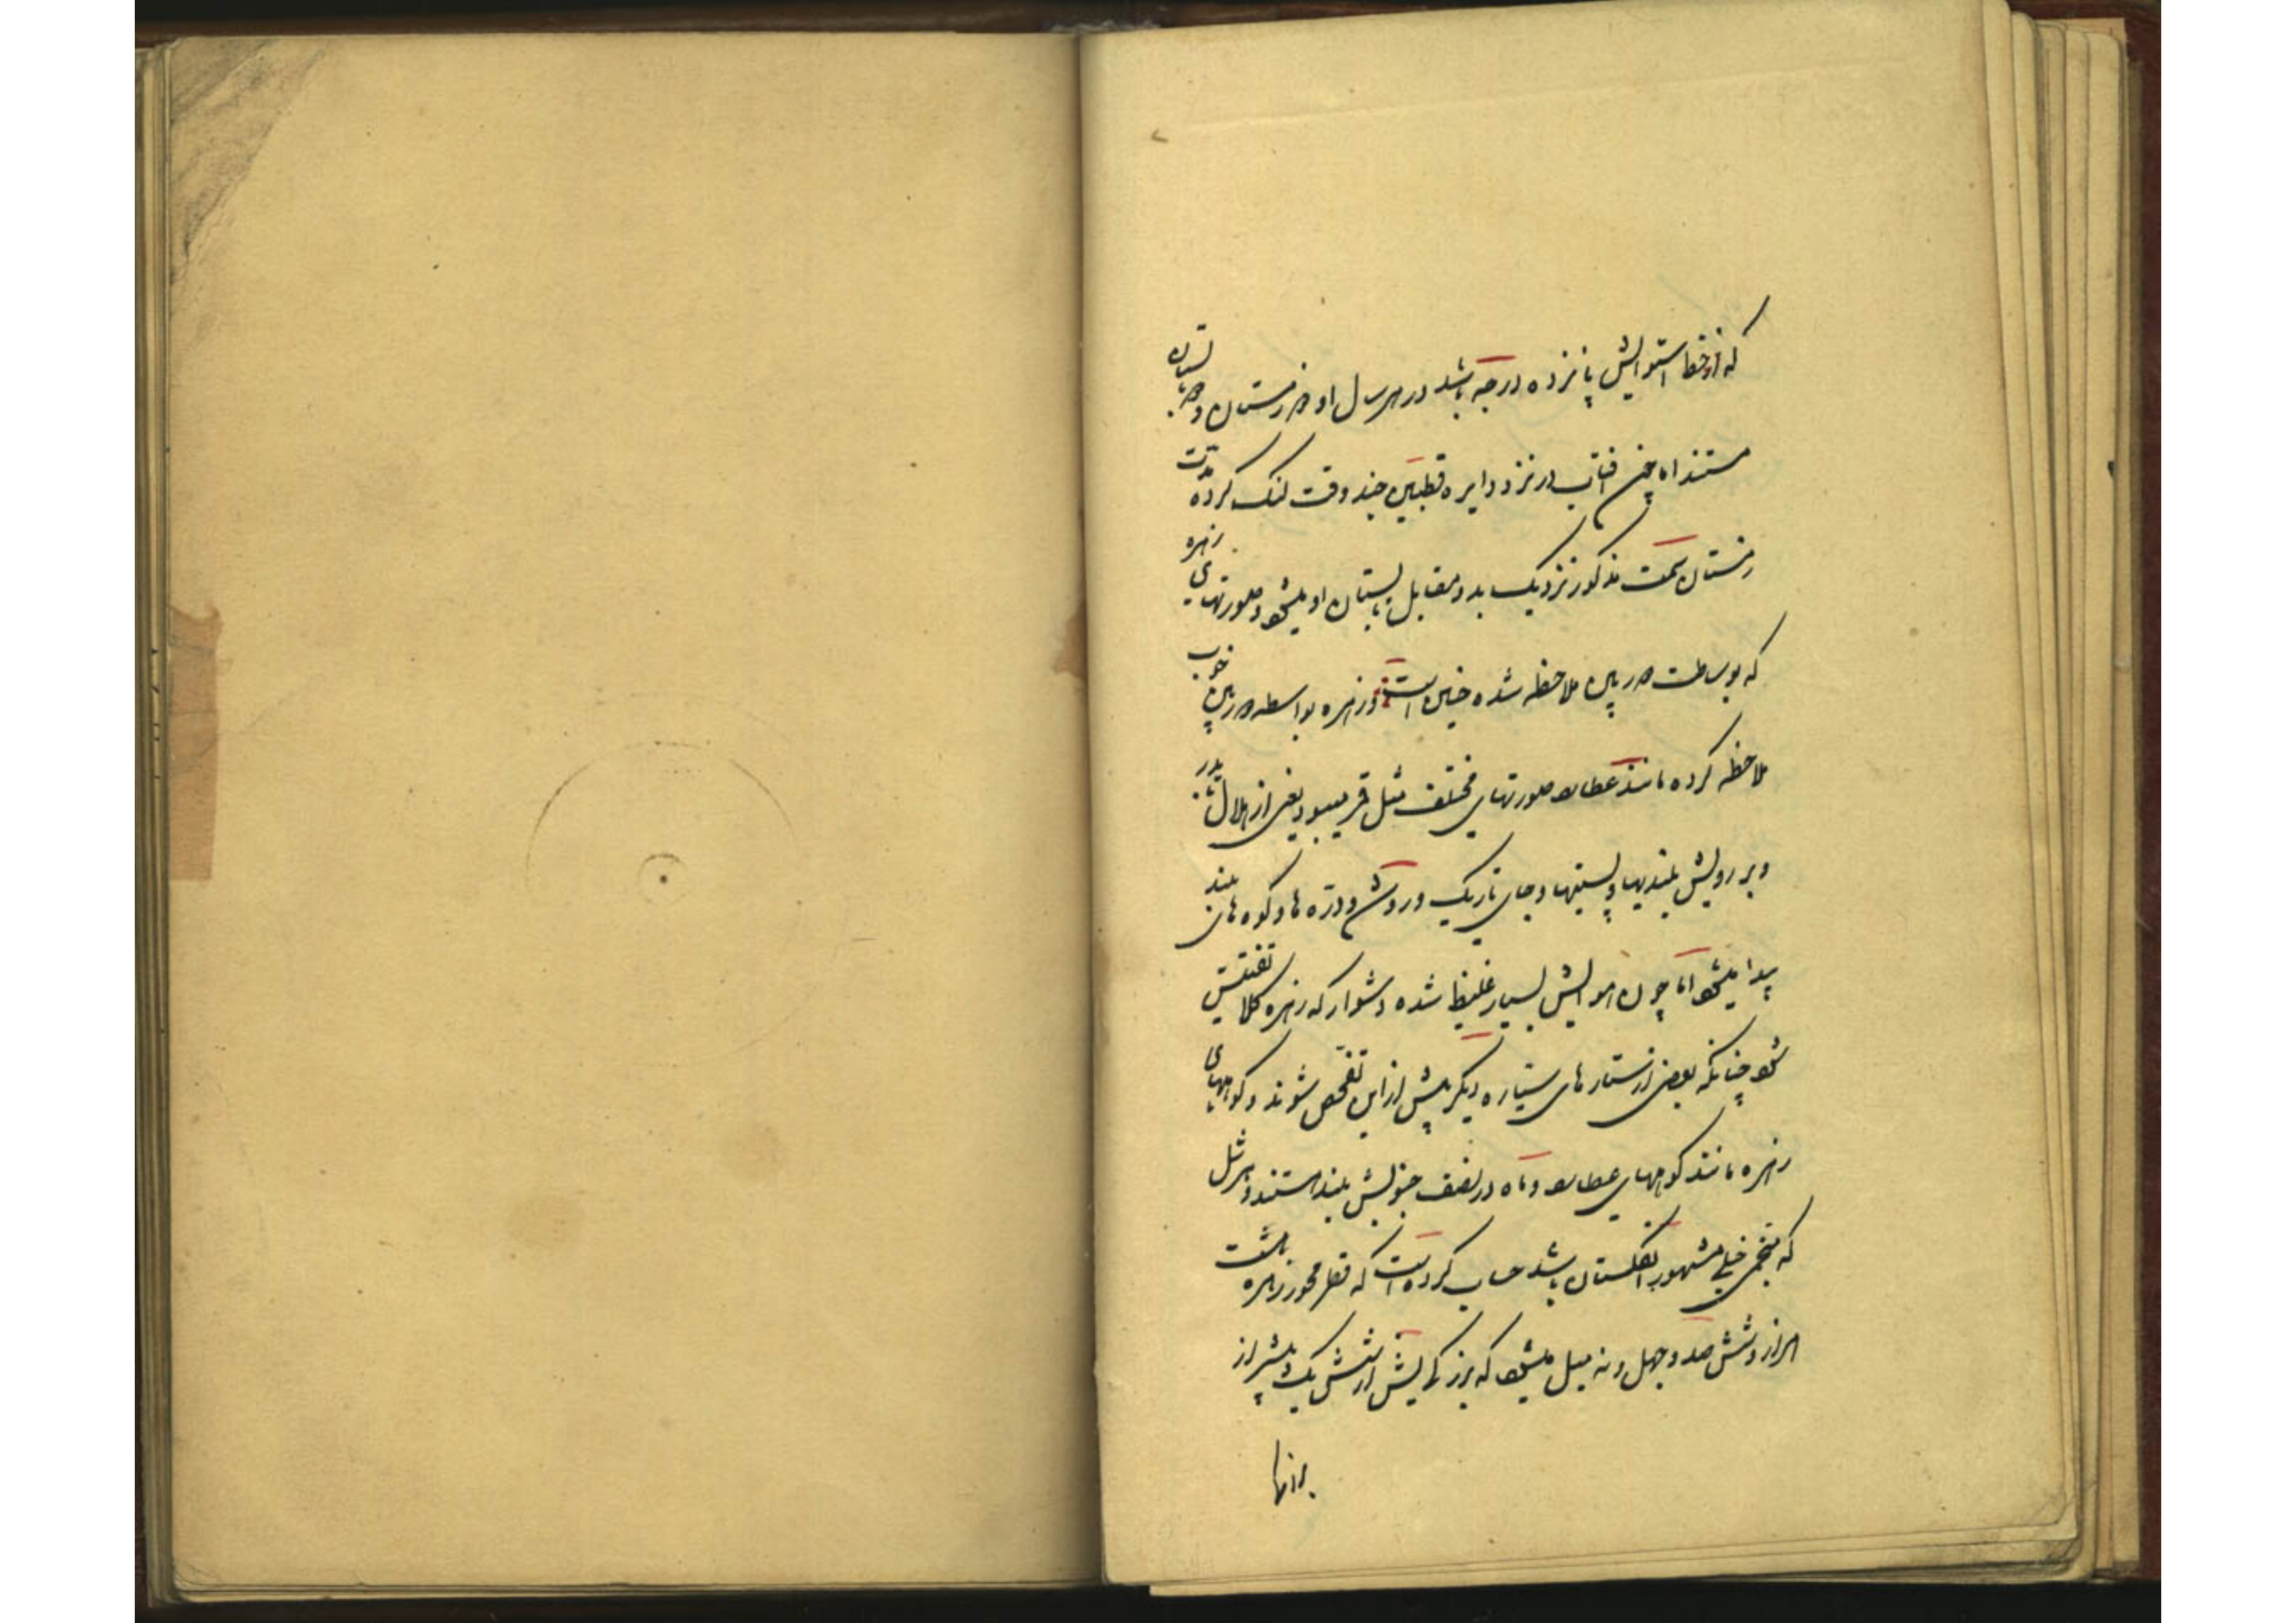 که از خط استوایش پانزده درجه باشد در هر سال او دو زمستان و دو تابستان
هستند اما چون افتاب در نزد دایره قطبین چند وقت لنک کرده مدت
زمستان سمت مذکور نزدیک بد و مقابل تابستان او میشود و صورتهای زهره
که بوساطت دوربین ملاحظه شده چنین است و زهره بواسطه دوربین خوب
ملاحظه کرده مانند عطارد صورتهای مختلف مثل قمر میبود یعنی از هلال تا بدر
و بر رویش بلندیها و پستیها و جای تاریک و روشن و درّه ها و کوه های بلند
پیدا میشود اما چون هوایش بسیار غلیظ شده دشوار که زهره کلا تفتیش
شود چنانکه بعضی از ستارهای سیّاره دیکر پیش از این تفحّص شوند و کوههای
زهره مانند کوههای عطارد و ماه در نصف جنوبیش بلند هستند و هرشل
که منجمی خیلی مشهور انکلستان باشد حساب کرده است که قطر محور زهره هشت
هزار و شش صد و چهل و نه میل میشود که بزرکیش از شش یک بیشتر از